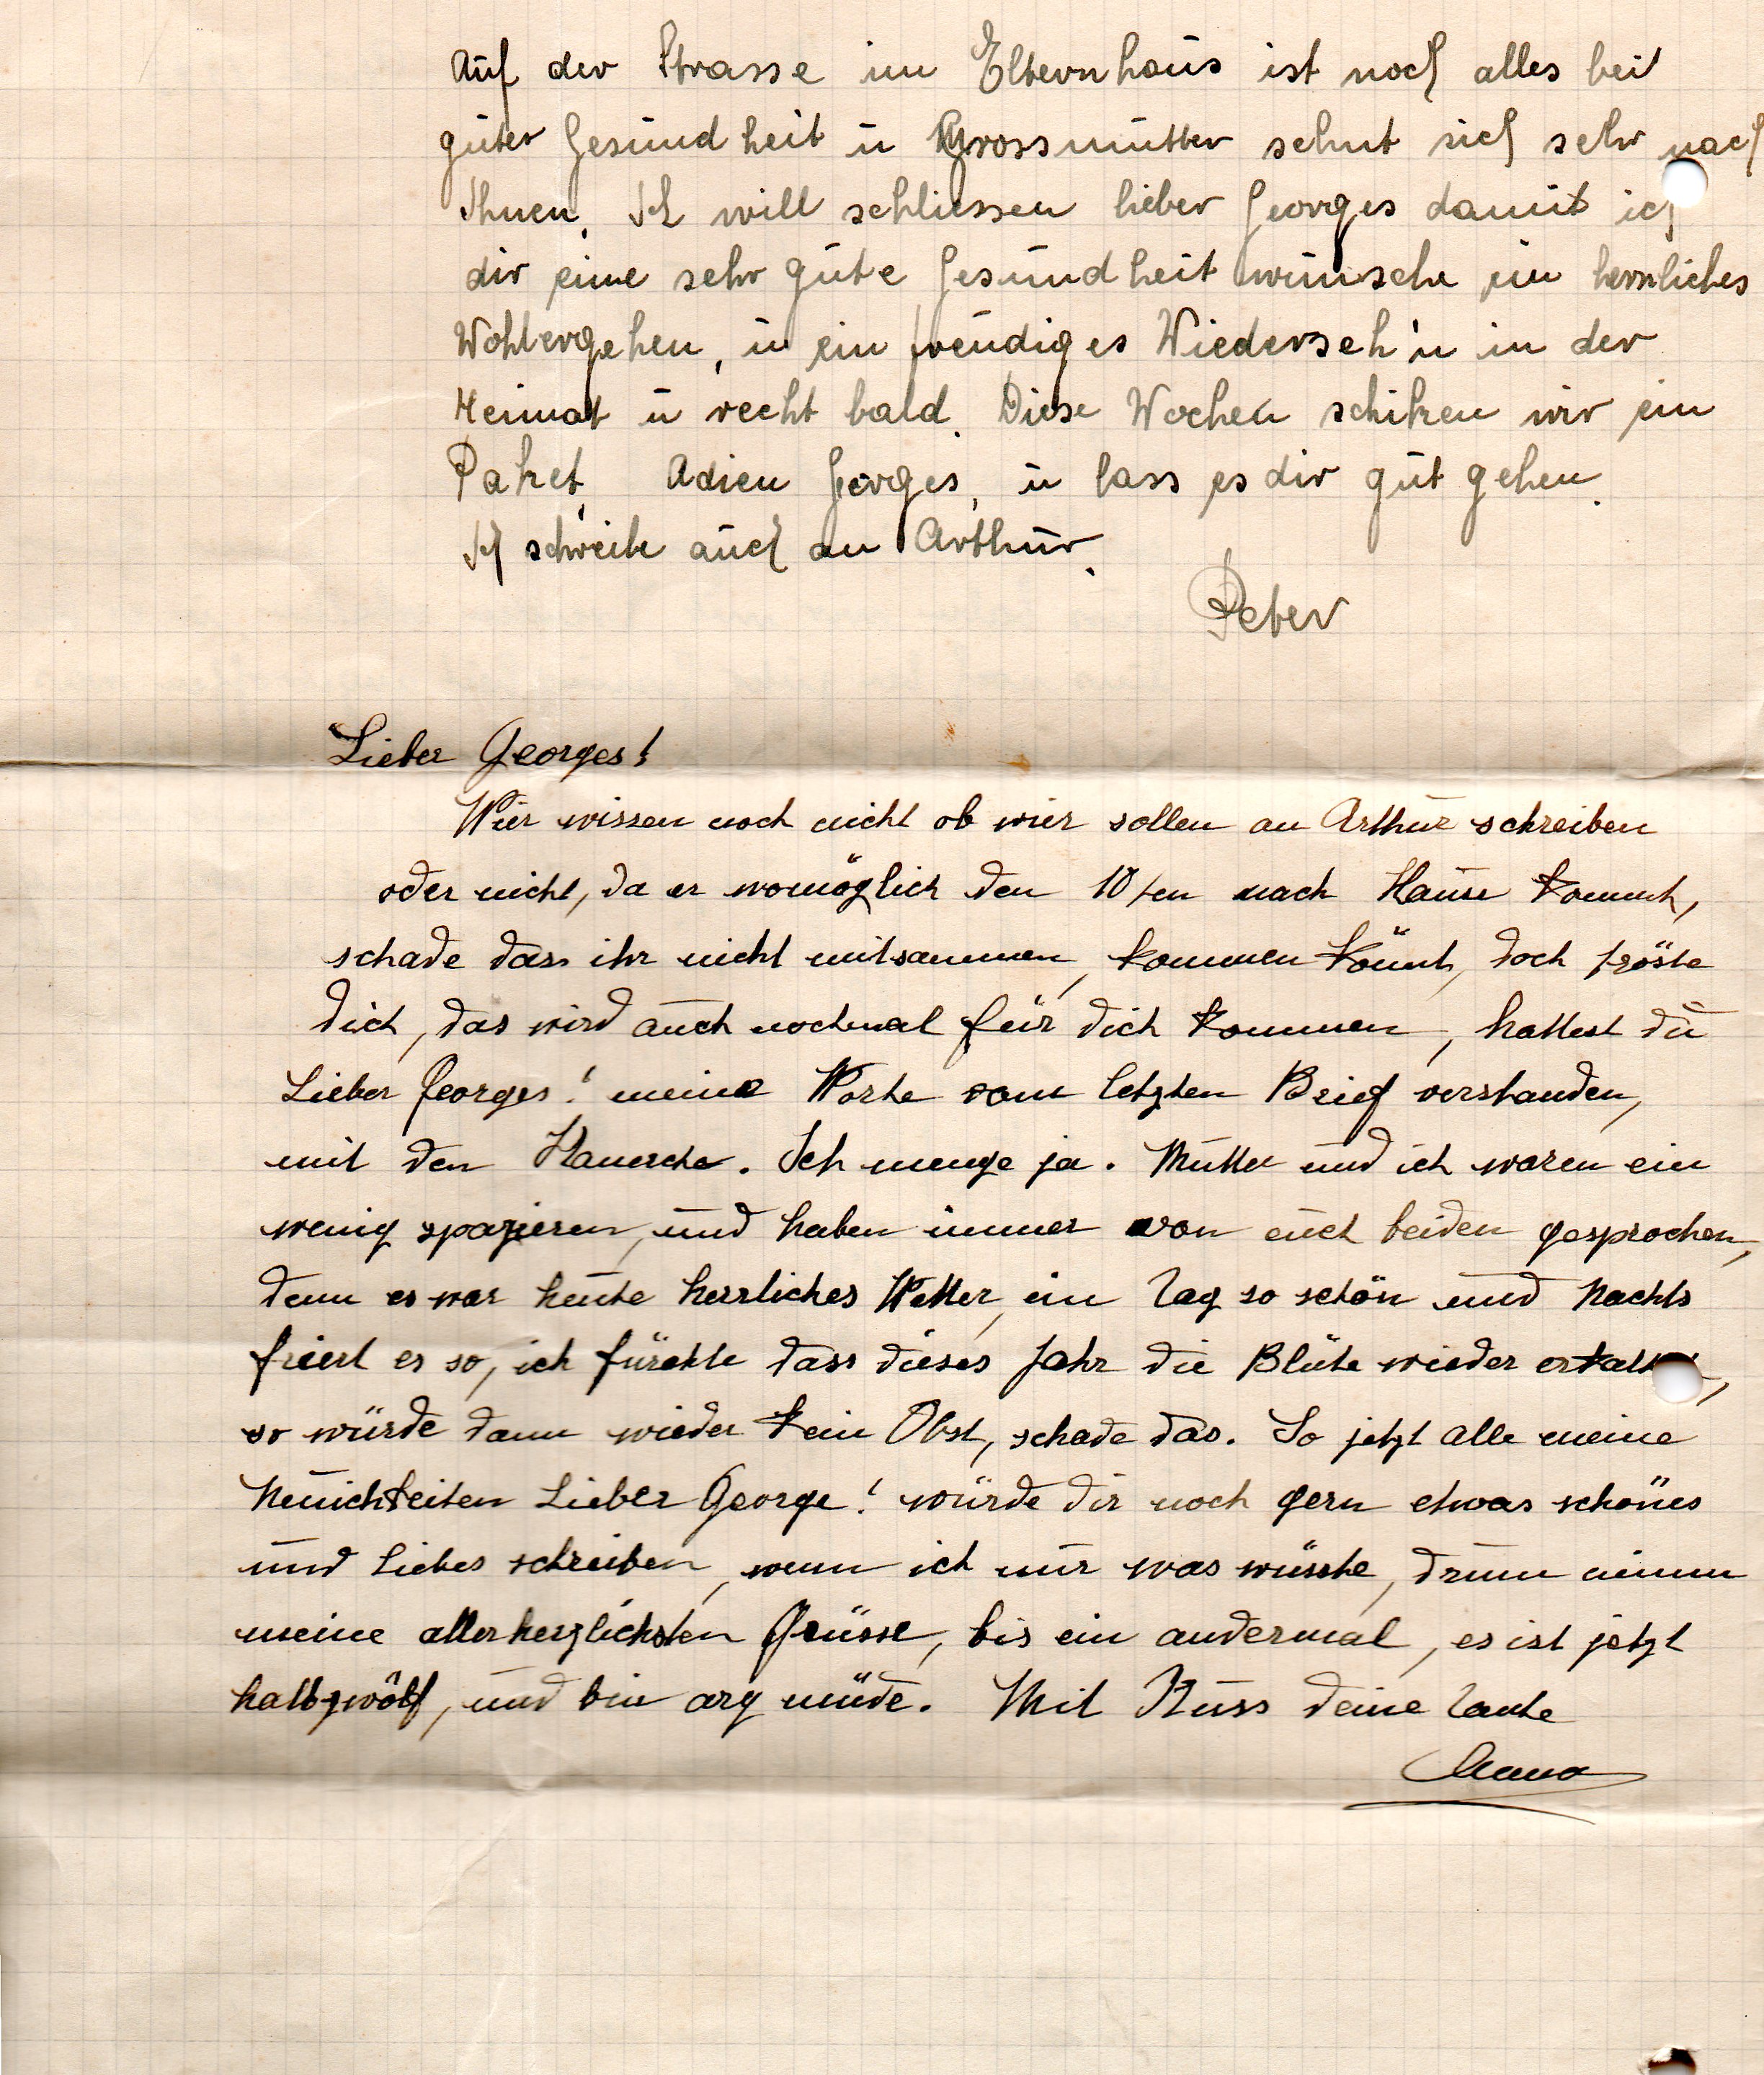 Auf der Strasse im Elternhaus ist noch alles bei
guter Gesundheit u Grossmutter sehnt sich sehr nach
Ihnen. Ich will schliessen lieber Georges damit ich
dir eine sehr gute Gesundheit wünsche ein herrliches
Wohlergehen, u ein freudiges Wiederseh'n in der
Heimat u recht bald. Diese Wochen schiken wir ein
Paket, Adieu Georges, u lass es dir gut gehen.
Ich schreibe auch an Arthur.
Peter
Lieber Georges!
Wier wissen noch nicht ob wier sollen an Arthur schreiben
oder nicht, da er womöglich den 10ten nach Hause kommt,
schade dass ihr nicht mitsammen, kommen könnt, doch tröste
dich, das wird auch nochmal für dich kommen, hattest du
Lieber Georges! meine Worte vom letzten Brief verstanden,
mit den. Ich menge ja. Mutter und ich waren ein
wenig spazieren, und haben immer von euch beiden gesprochen,
denn es war heute herrliches Wetter, ein Tag so schön und Nachts
friert es so, ich fürchte dass dieses Jahr die Blüte wieder
so würde dann wieder kein Obst, schade das. So jetzt alle meine
Neuichkeiten Lieber George! würde dir noch gern etwas schönes
und liebes schreiben, wenn ich nur was wüsste, drum nimm
meine allerherzlichsten Grüsse, bis ein andermal, es ist jetzt
halbzwölf, und bin arg müde. Mit Kuss deine Tante